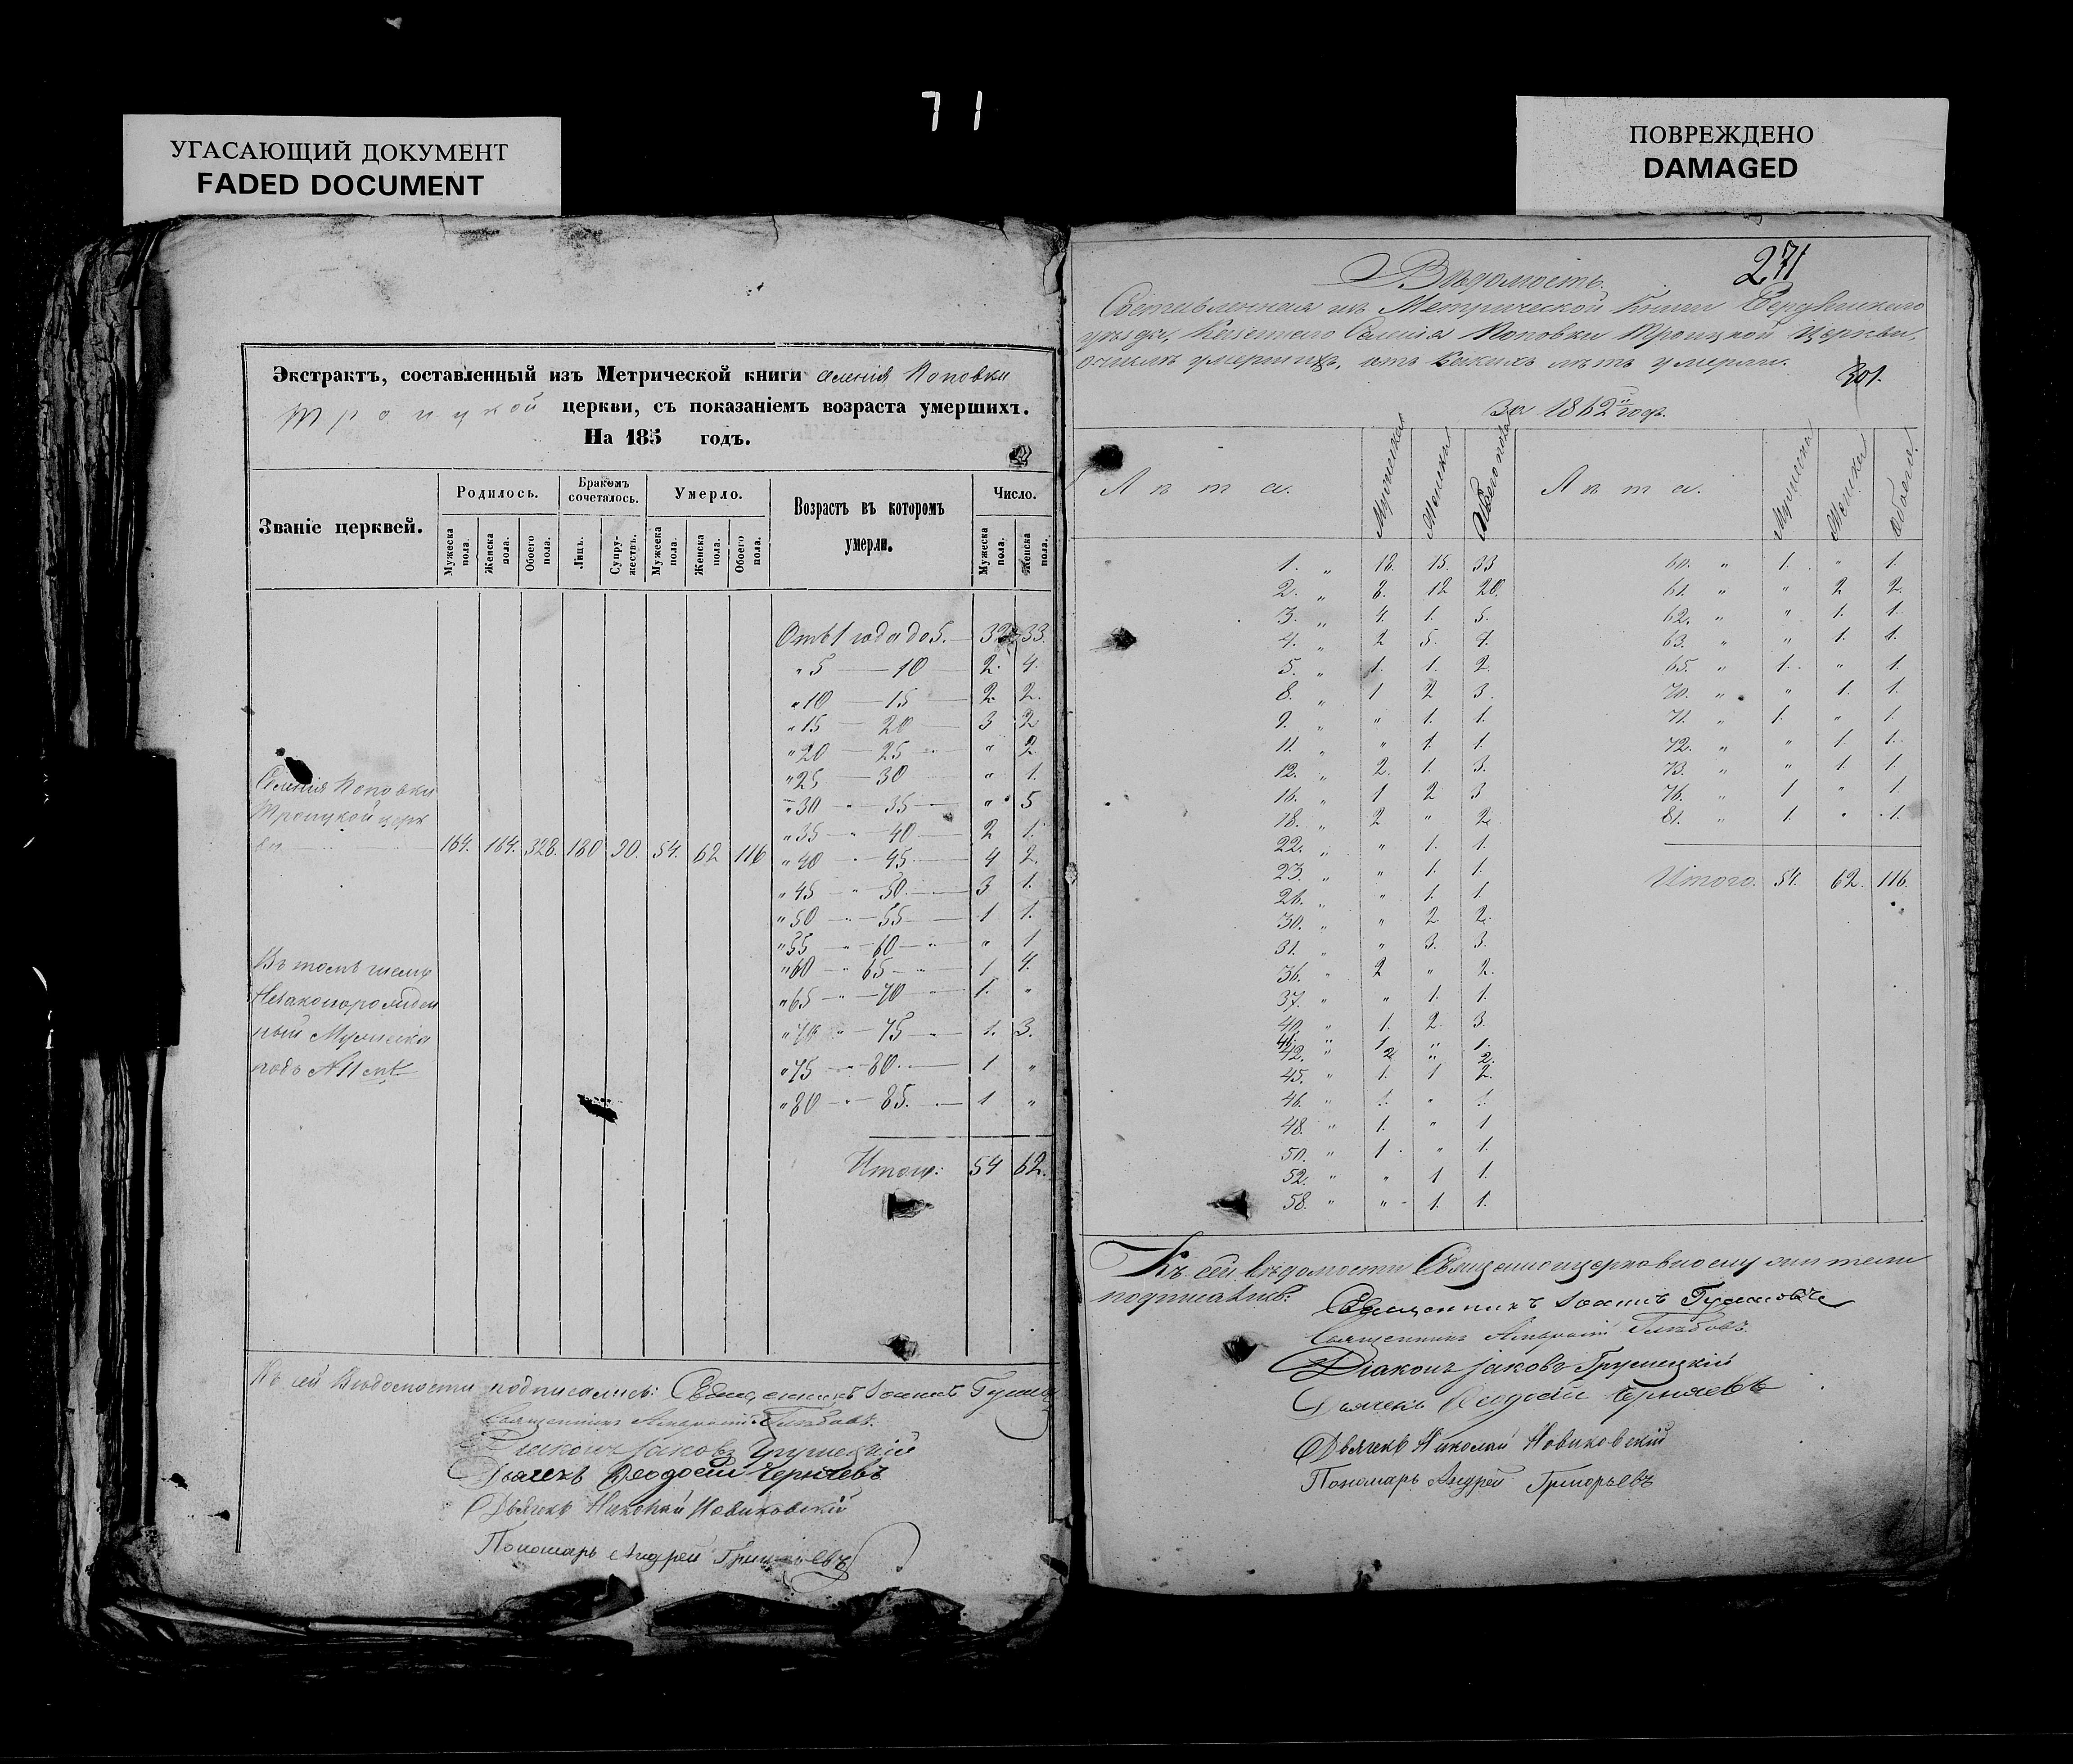 71
УГАСАЮЩИЙ ДОКУМЕНТ
FADED DOCUMENT
ПОВРЕЖДЕНО
DAMAGED
Экстрактъ, составленный изъ Метрической книги селенія Поповки
Троицкой церкви, съ показаніемъ возраста умершихъ.
На 185 годъ.
Званіе церквей.
Родилось.
Бракомъ сочеталось.
Умерло.
Возрастъ въ которомъ умерли.
Число.
Мужеска пола.
Женска пола.
Обоего пола.
Лицъ.
Супружествъ.
Мужеска пола.
Женска пола.
Обоего пола.
Мужеска пола.
Женска пола.
Отъ 1 года до 5. 32 33.
" 5 — 10 — 2. 4.
" 10 — 15 — 2. 2.
" 15 — 20 — 3 2
" 20 — 25 " " 2
" 25 — 30 " 1.
" 30 " 35 — " 5
" 35 " 40 — 2 1.
Селенія Поповки
Троицкой церк
ви 164. 164. 328. 180 90. 54. 62 116
" 40 " 45. — 4 2.
" 45 " 50. — 3 1.
" 50 " 55 — 1 1.
" 55 " 60 " " 1
" 60 " 65 " 1 4.
" 65 " 70 " 1. "
" 70 " 75 " 1. 3.
" 75 " 80. — 1 "
" 80 " 85. — 1 "
Въ томъ числѣ
Незаконорожден
ный Мужеска
подъ №11
Итого: 54 62.
Къ сей Вѣдомости подписались: Священникъ Іоаннъ
Священникъ Глѣбовъ.
Діаконъ Іаковъ Грушецкій
Дьячекъ Ѳеодосій Черняевъ
Дьячекъ Николай Новиковскій
Пономарь Андрей Григорьевъ
271
Вѣдомость
Составленная изъ Метрической Книги Бердянскаго
уѣзда, Казеннаго Селенія Поповки Троицкой Церкви,
о числѣ умершихъ, отъ какихъ лѣтъ умерли.
301.
За 1862й годъ.
Лѣта.
Мужеска
Женска
Обоего пола
Лѣта.
Мужеска
Женска
Обоего
1. " 18. 15. 33 60. " 1. " 1.
2. " 8. 12 20. 61. " " 2 2.
3. " 4. 1. 5. 62. " " 1. 1.
4. " 2 5. 7. 63. " " 1. 1.
5. " 1. 1. 2. 65. " 1. " 1.
8. " 1 2 3. 70. " " 1. 1.
9. " " 1. 1. 71. " 1. " 1.
11. " " 1. 1. 72. " " 1. 1.
12. " 2. 1. 3. 73. " " 1 1
16. " 1 2 3 76. " 1 " 1.
18. " 2 " 2. 81. " 1. " 1.
22. " " 1. 1.
23. " " 1. 1. Итого. 54. 62. 116.
" " 1. 1.
30. " " 2 2.
31. " " 3. 3.
36. " 2 " 2.
37. " " 1. 1.
40. " 1. 2. 3.
41. " 1 " 1.
42. " 2 " 2.
45. " 1. 1 2.
46. " 1. " 1.
48. " 1. " 1
50. " 1. " 1.
52. " " 1 1.
58. " " 1. 1.
Къ сей вѣдомости Священноцерковнослужители
подписались:
Священникъ Іоаннъ
Священникъ Глѣбовъ
Діаконъ Іаковъ Грушецкій
Дьячекъ Ѳеодосій Черняевъ
Дьячекъ Николай Новиковскій
Пономарь Андрей Григорьевъ